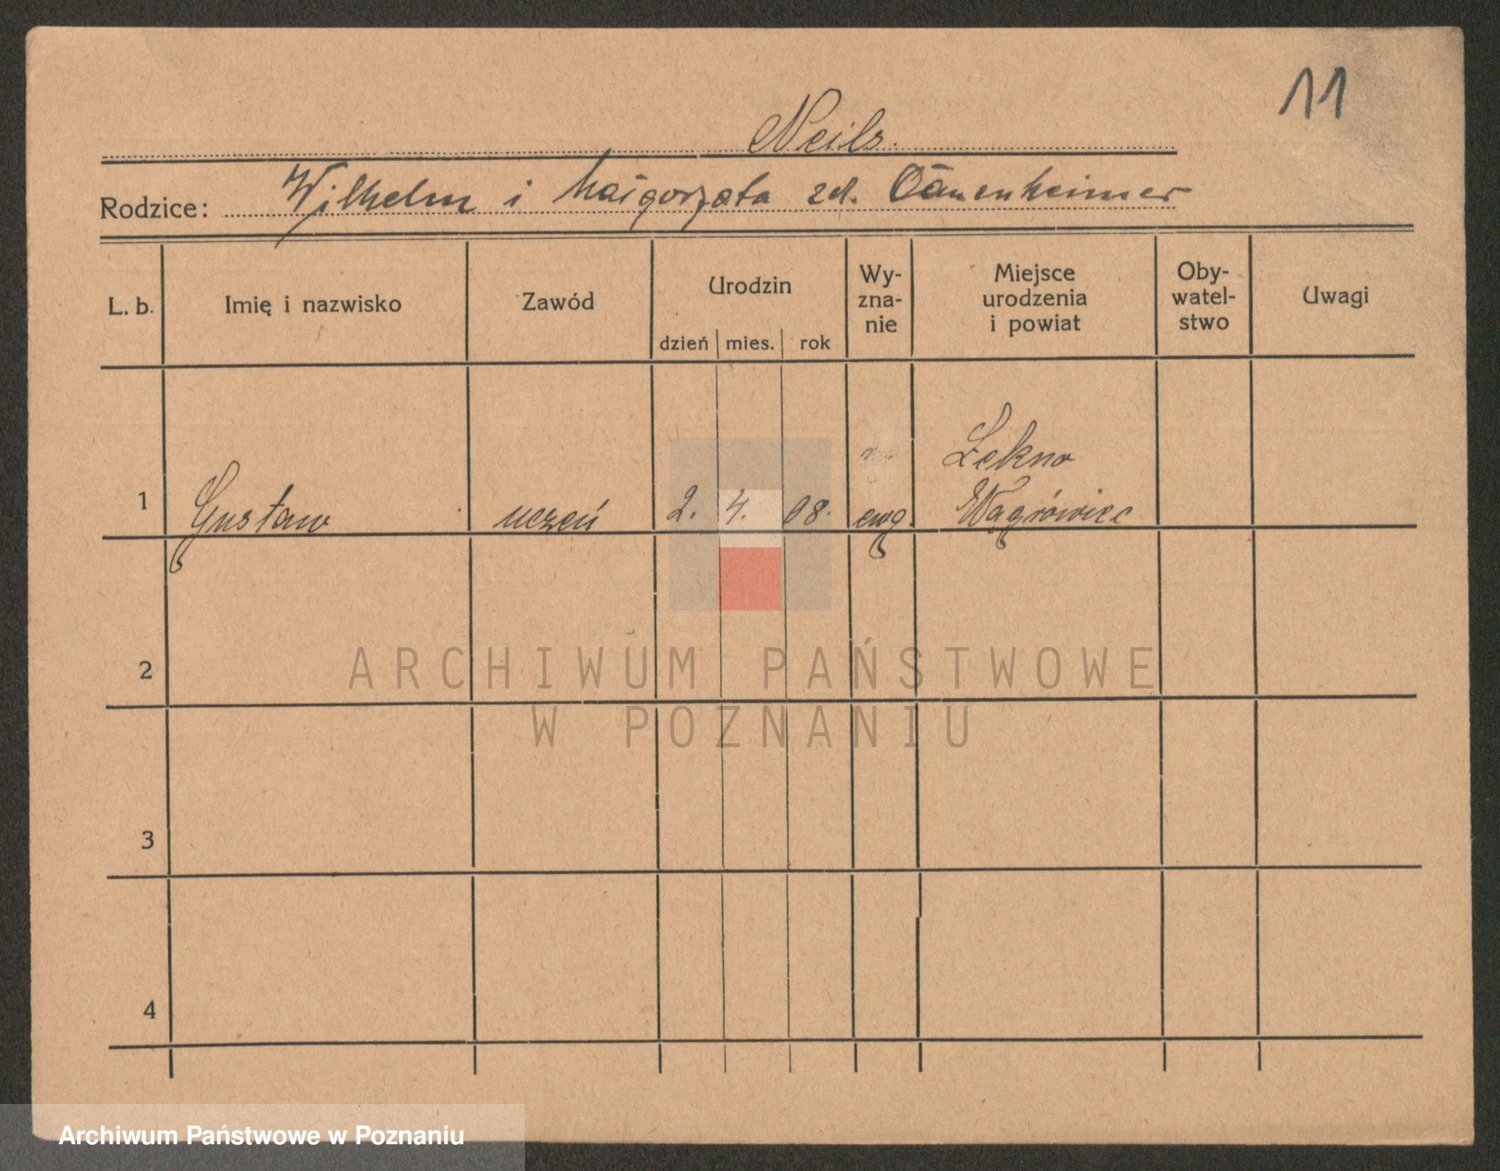 11
Neils.
Rodzice: Wilhelm i Małgorzata zd.
L. b. Imię i nazwisko Zawód Urodzin dzień mies. rok Wy-zna-nie Miejsce urodzenia i powiat Oby-watel-stwo Uwagi
Łekno
1 Gustaw uczeń 2. 4. 08. ewg. Wągrówiec
2
ARCHIWUM PAŃSTWOWE
W POZNANIU
3
4
Archiwum Państwowe w Poznaniu